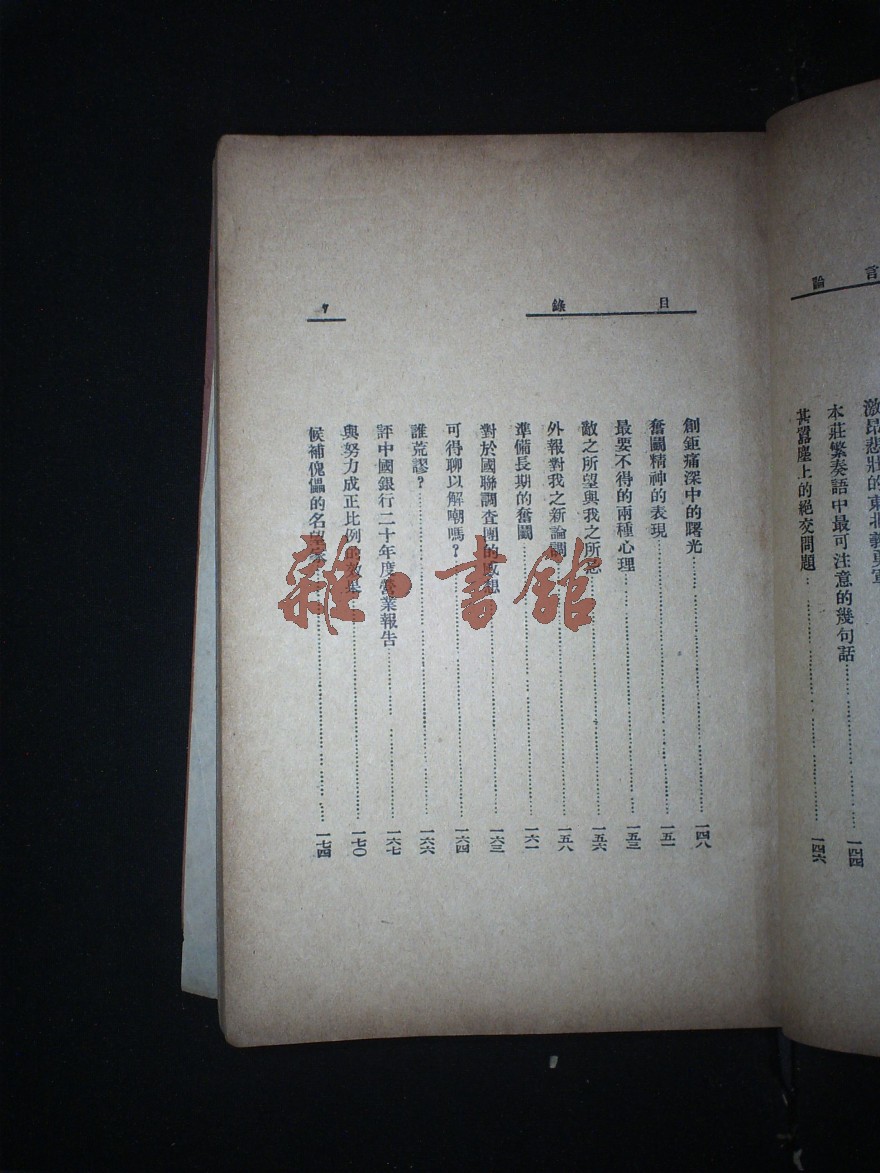 言論
激昂悲壯的東北義勇軍
本莊繁奏語中最可注意的幾句話……一四四
甚囂塵上的絕交問題……一四六
目錄
7
創鉅痛深中的曙光……一四八
奮鬭精神的表現……一五一
最要不得的兩種心理……一五三
敵之所望與我之所忌……一五六
外報對我之新論調……一五八
準備長期的奮鬭……一六一
對於國聯調查團的感想……一六三
可得聊以解嘲嗎？……一六四
誰荒謬？……一六六
評中國銀行二十年度營業報告……一六七
與努力成正比例的效果……一七〇
候補傀儡的名望……一七四
雜·書館